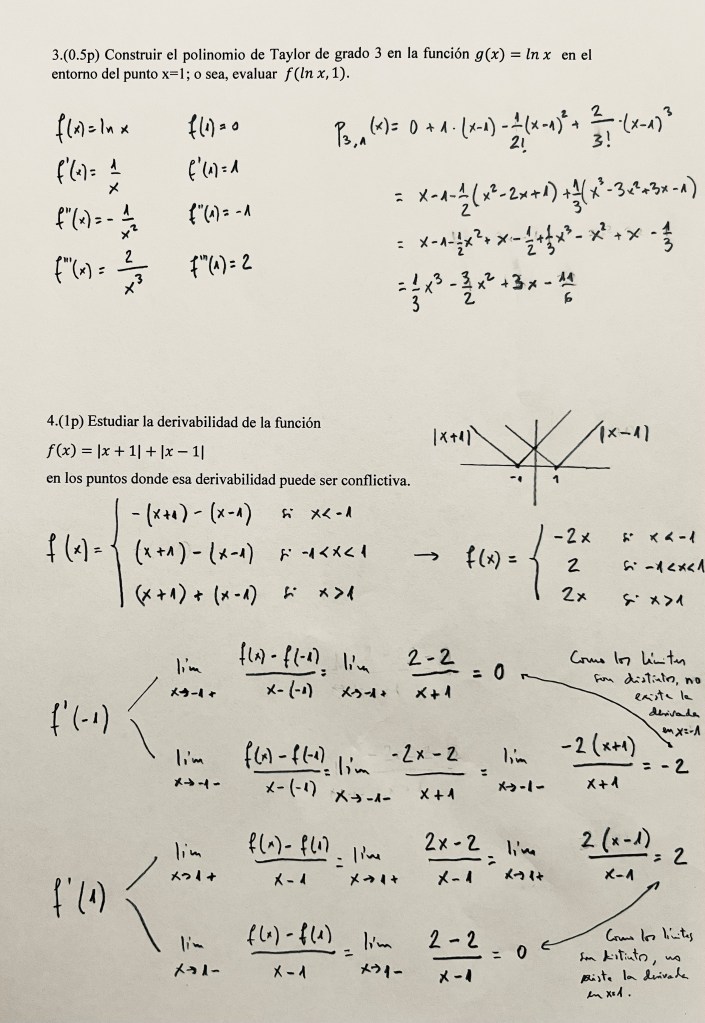 3.(0.5p) Construir el polinomio de Taylor de grado 3 en la función g(x) = ln x en el
entorno del punto x=1; o sea, evaluar f(ln x, 1).
f(x) = ln x f(1) = 0
f'(x) = 1/x f'(1) = 1
f''(x) = - 1/x² f''(1) = -1
f'''(x) = 2/x³ f'''(1) = 2
P₃,₁(x) = 0 + 1·(x-1) - 1/2! (x-1)² + 2/3! ·(x-1)³
= x-1-1/2 (x²-2x+1) + 1/3 (x³-3x²+3x-1)
= x-1-1/2 x² + x - 1/2 + 1/3 x³ - x² + x - 1/3
= 1/3 x³ - 3/2 x² + 3x - 11/6
4.(1p) Estudiar la derivabilidad de la función
f(x) = |x + 1| + |x − 1|
en los puntos donde esa derivabilidad puede ser conflictiva.
|x+1| |x-1|
-1 1
f(x) = { -(x+1) - (x-1) si x<-1
(x+1) - (x-1) si -1<x<1
(x+1) + (x-1) si x>1
→ f(x) = { -2x si x<-1
2 si -1<x<1
2x si x>1
f'(-1)
lim x→-1+ (f(x) - f(-1))/(x-(-1)) = lim x→-1+ (2-2)/(x+1) = 0
lim x→-1- (f(x) - f(-1))/(x-(-1)) = lim x→-1- (-2x-2)/(x+1) = lim x→-1- (-2(x+1))/(x+1) = -2
Como los límites
son distintos, no
existe la
derivada
en x=-1
f'(1)
lim x→1+ (f(x) - f(1))/(x-1) = lim x→1+ (2x-2)/(x-1) = lim x→1+ (2(x-1))/(x-1) = 2
lim x→1- (f(x) - f(1))/(x-1) = lim x→1- (2-2)/(x-1) = 0
Como los límites
son distintos, no
existe la derivada
en x=1.